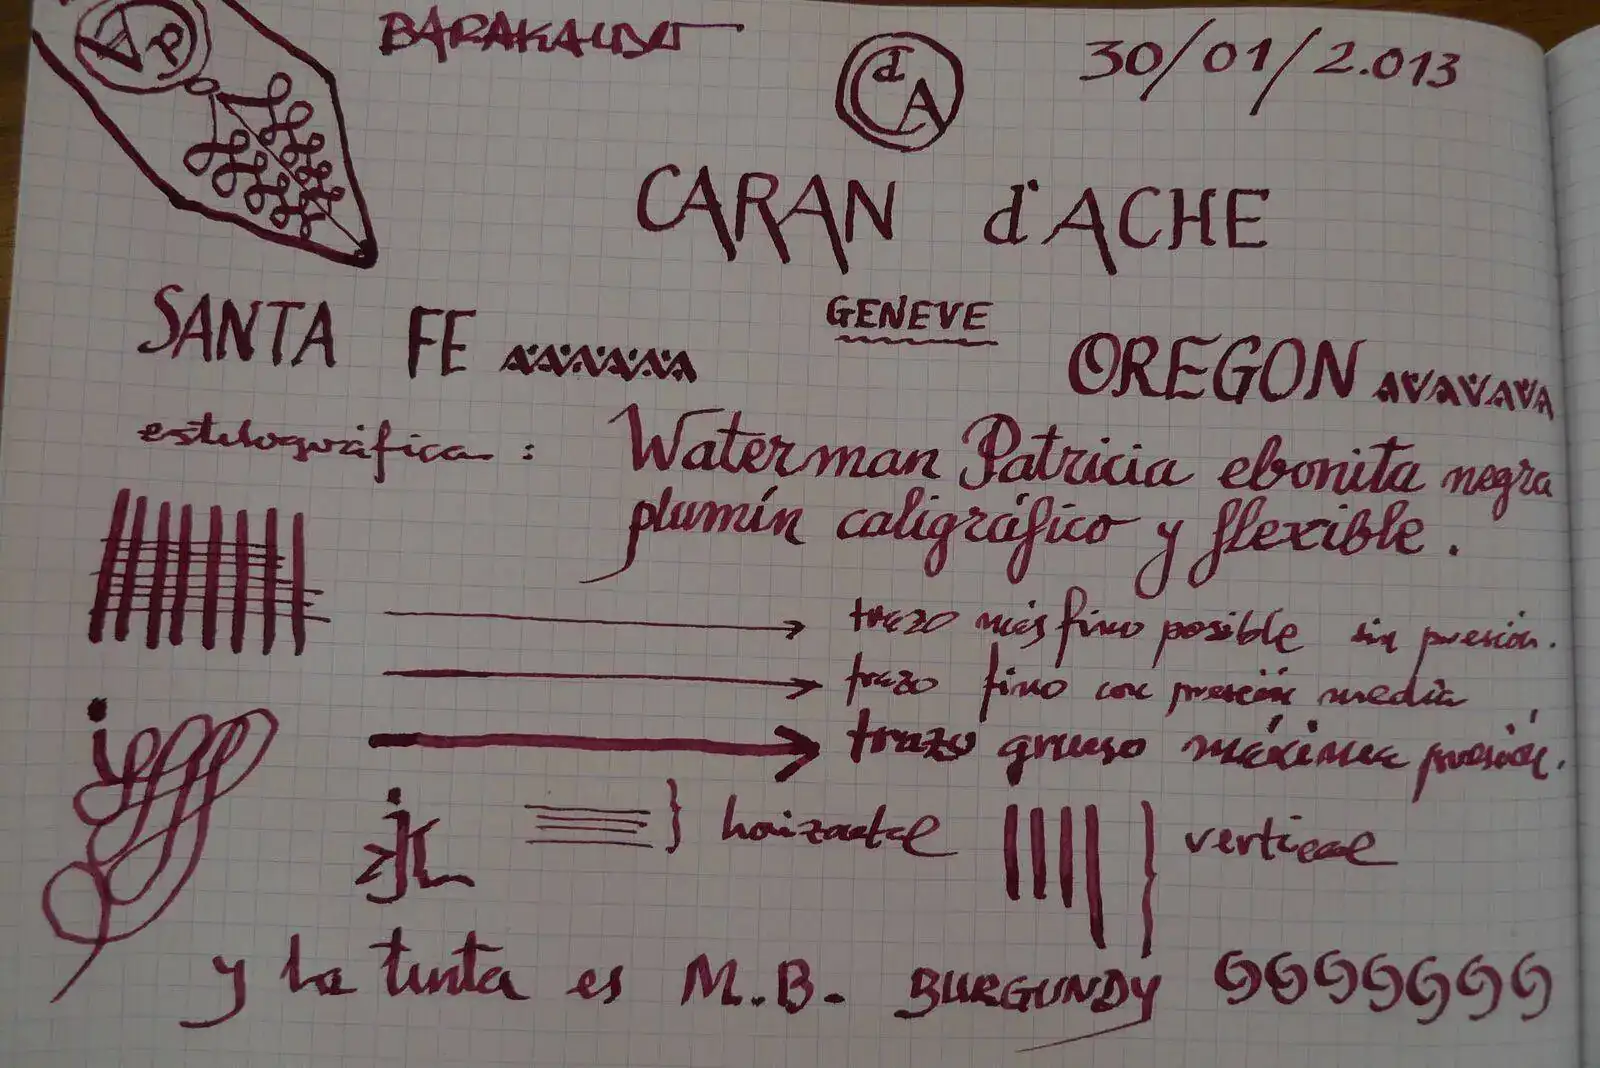 BARAKALDO
30/01/2.013
d
CA
CARAN d'ACHE
GENEVE
SANTA FE
OREGON
estilográfica :
Waterman Patricia ebonita negra
plumín caligráfico y flexible.
trazo más fino posible sin presión.
trazo fino con presión media
trazo grueso máxima presión.
horizontal
vertical
y la tinta es M.B. BURGUNDY